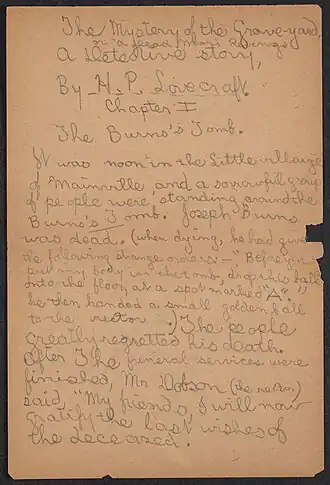 The Mystery of the Grave-yard,
or "a dead Man's Revenge"
A Detective story,
By H. P. Lovecraft.
Chapter I
The Burns's Tomb.
It was noon in the Little village
of Mainville, and a sorrowful group
of people were standing around the
Burns's Tomb. Joseph Burns
was dead. (when dying, he had given
the following strange orders:—"Before you
put my body in the tomb, drop this ball
onto the floor, at a spot marked "A"."
he then handed a small golden ball
to the rector.) The people
greatly regretted his death.
After The funeral services were
finished, Mr Dobson (the rector)
said, "My friends, I will now
gratify the last wishes of
the deceased.